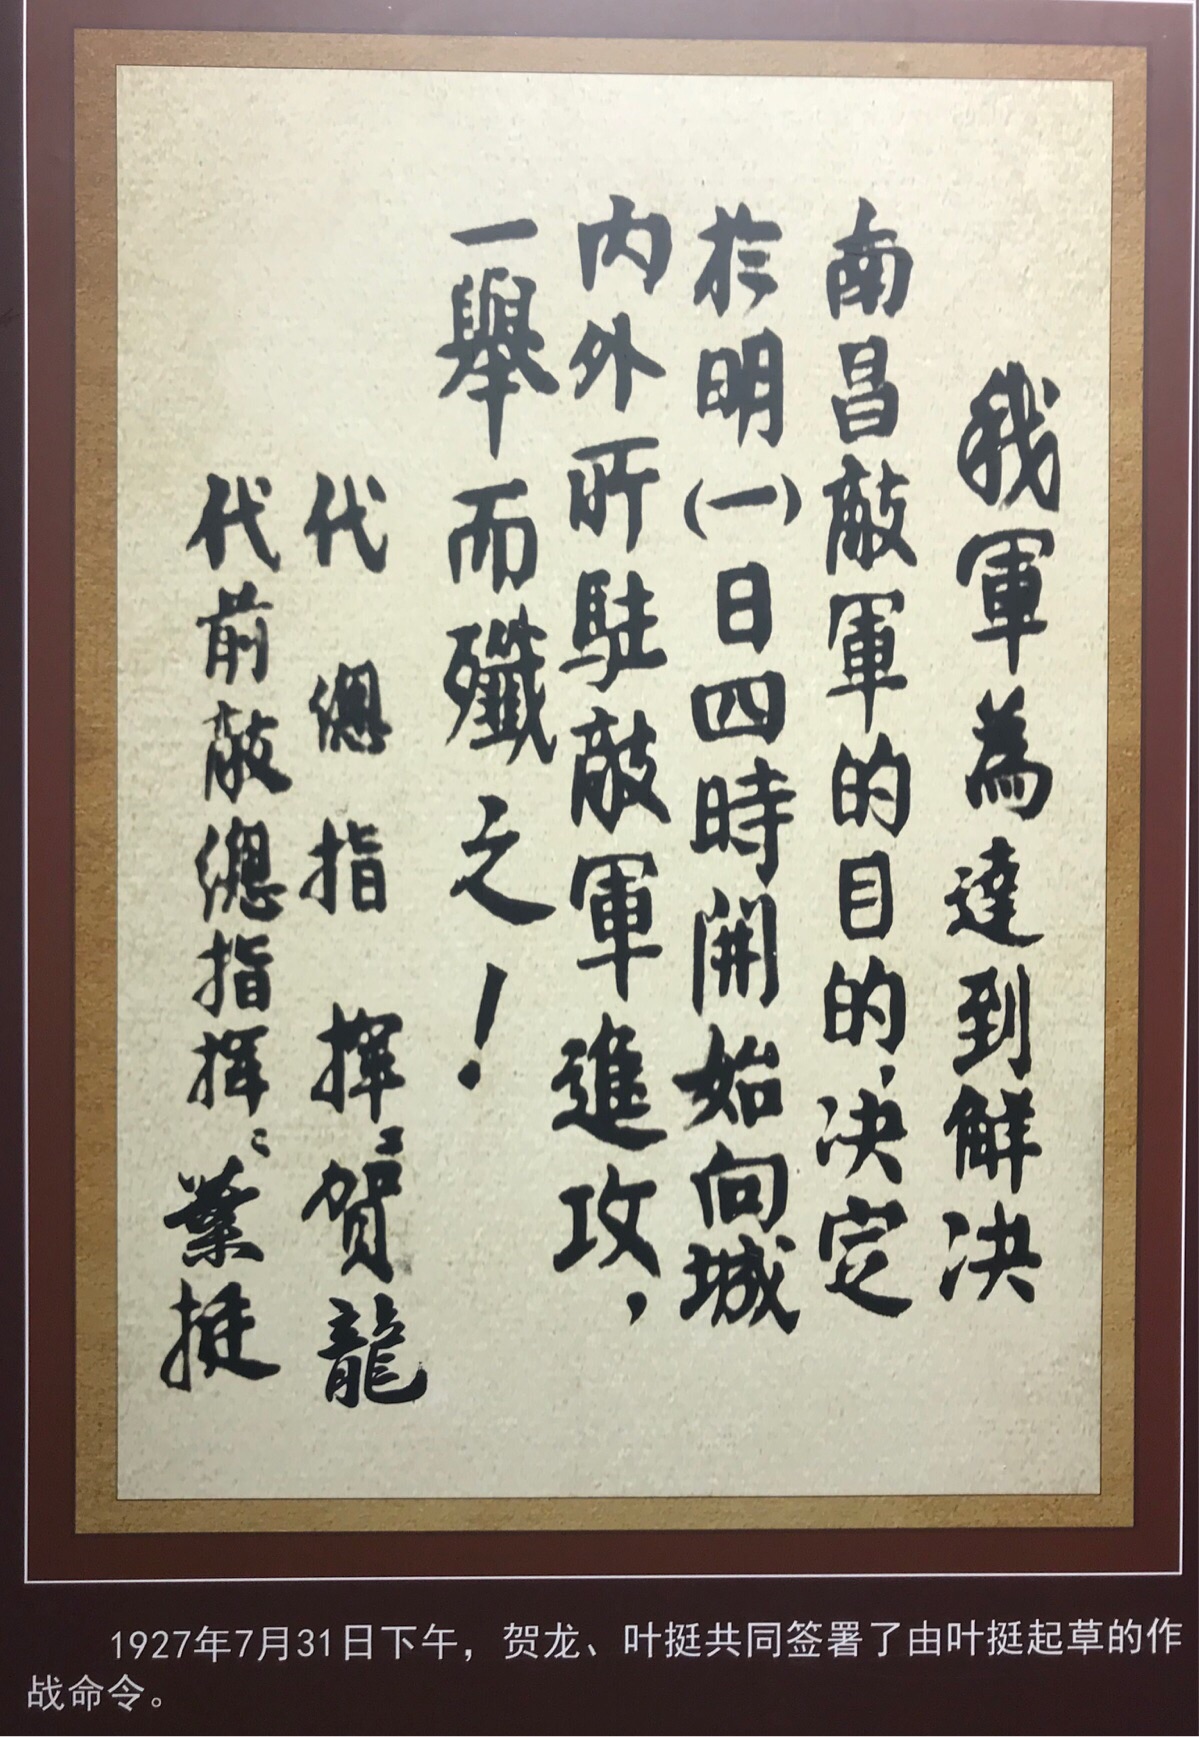 我軍為達到解决
南昌敵軍的目的，决定
於明(一)日四時開始向城
内外所駐敵軍進攻，
一舉而殲之！
代總指揮：賀龍
代前敵總指揮：葉挺
1927年7月31日下午，贺龙、叶挺共同签署了由叶挺起草的作
战命令。